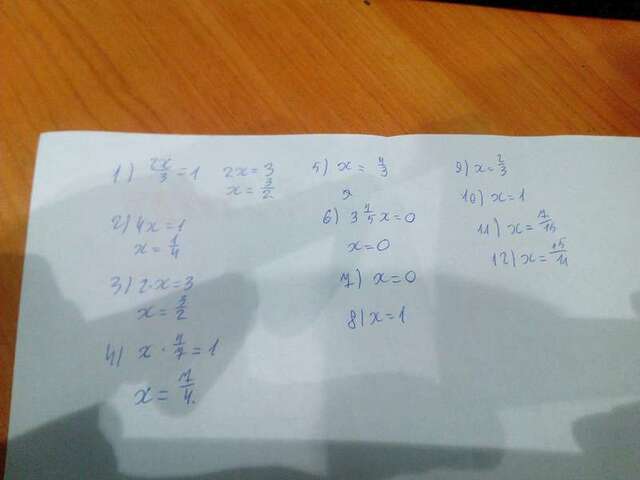 1) 2x/3 = 1 2x = 3
x = 3/2
2) 4x = 1
x = 1/4
3) 2·x = 3
x = 3/2
4) x · 4/7 = 1
x = 7/4
5) x = 4/3
6) 3 x = 0
x = 0
7) x = 0
8) x = 1
9) x = 2/3
10) x = 1
11) x = 7/15
12) x = 15/11